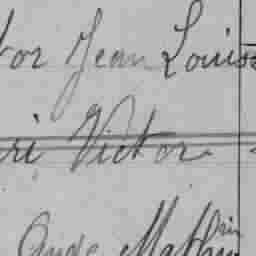 or Jean Louis
ri Victor
Ande Mathieu